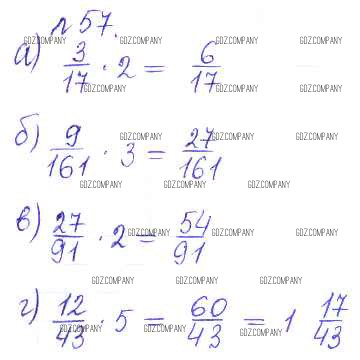 №57.
а) 3/17 · 2 = 6/17
б) 9/161 · 3 = 27/161
в) 27/91 · 2 = 54/91
г) 12/43 · 5 = 60/43 = 1 17/43
GDZ.COMPANY GDZ.COMPANY GDZ.COMPANY GDZ.COMPANY
GDZ.COMPANY GDZ.COMPANY GDZ.COMPANY
GDZ.COMPANY GDZ.COMPANY GDZ.COMPANY
GDZ.COMPANY GDZ.COMPANY GDZ.COMPANY
GDZ.COMPANY GDZ.COMPANY GDZ.COMPANY GDZ.COMPANY
GDZ.COMPANY GDZ.COMPANY GDZ.COMPANY
GDZ.COMPANY GDZ.COMPANY GDZ.COMPANY